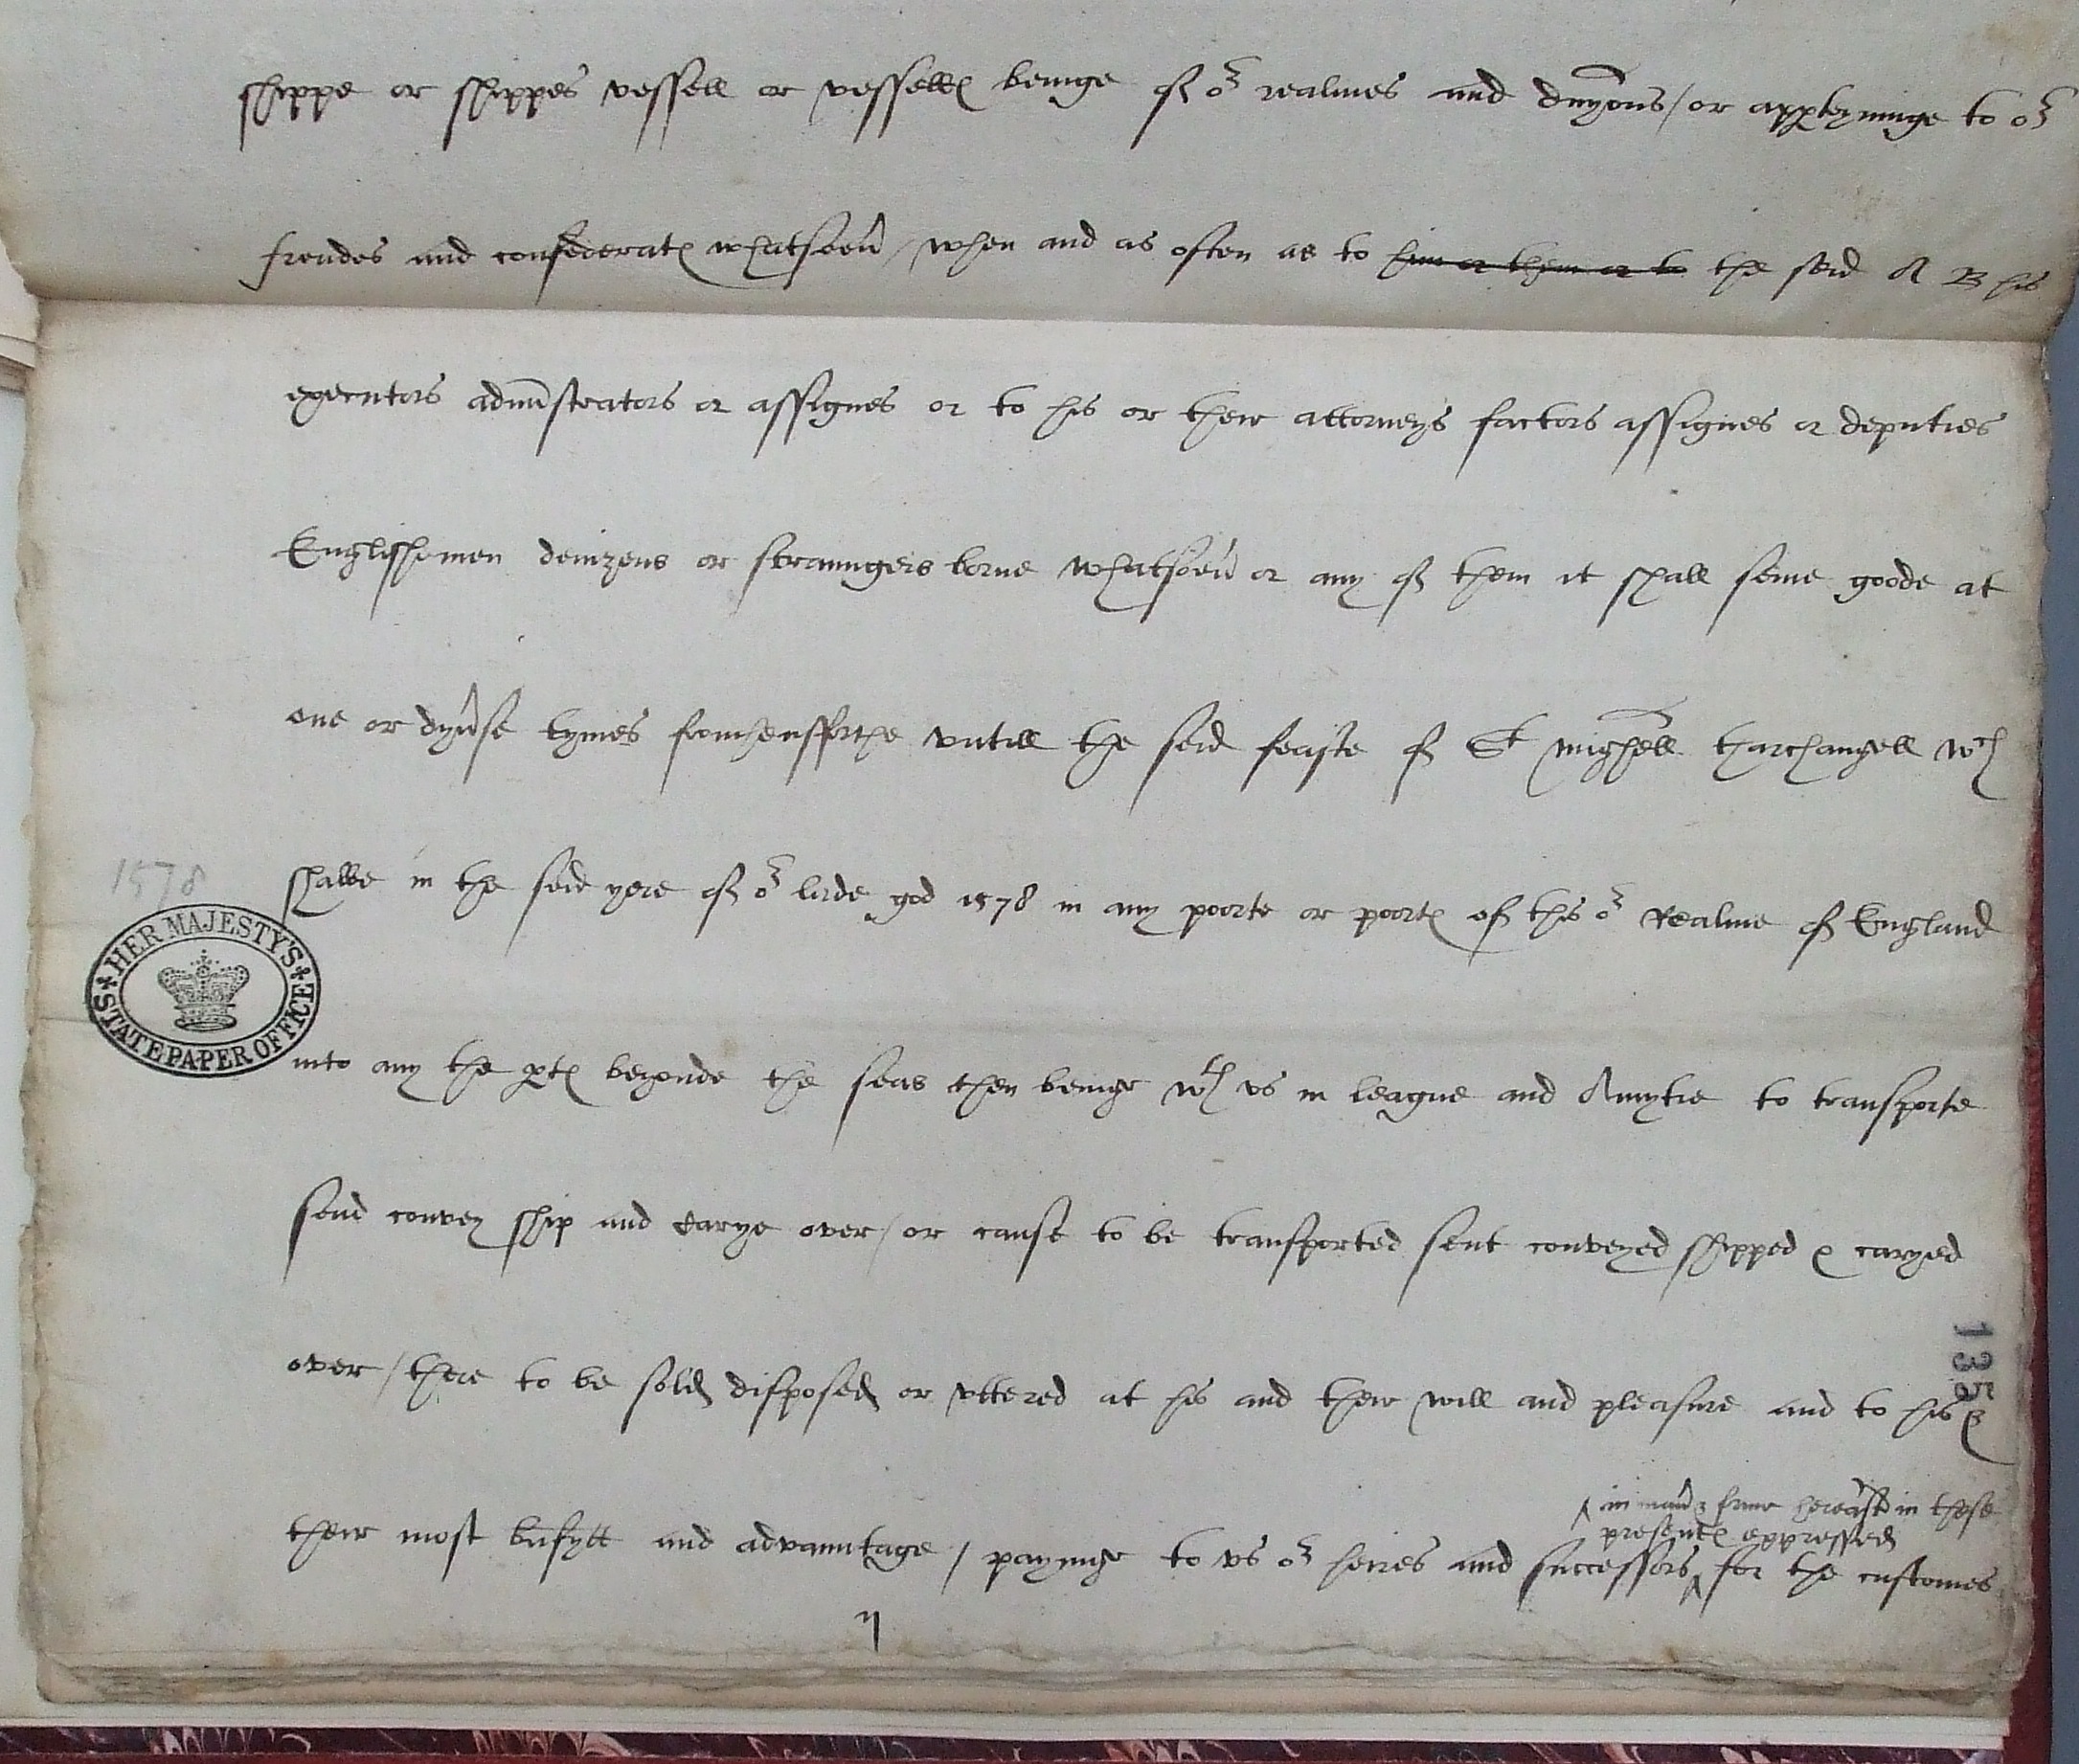 shippe or shippes vessell or vessellℯ beinge of oʳ realmes and dnyons / or apꝑteyninge to oʳ
frendes and confederatℯ whatsoeu̾ / when and as often as to ~~him or them or to~~ the seid A B his
executors admīstrators or assignes or to his or their attorneys factors assignes or deputies
Englishemen denizens or straungers borne whatsoeu̾ or any of them it shall seme goode at
one or dyu̾se tymes fromhensfforthe vntill the seid feaste of Sᵗ Mighell tharchangell wᶜʰ
shalbe in the seid yere of oʳ lorde god 1578 in any poorte or poortℯ of this oʳ Realme of England
1578
HER MAJESTY'S STATE PAPER OFFICE
into any the ꝑtℯ beyonde the seas then beinge wᵗʰ vs in league and Amytie to transporte
send convey ship and carye over / or cause to be transported sent conveyed shipped & caryed
over / there to be sold disposed or vttered at his and their will and pleasure and to his &
135
in man̾ & forme hereaft̾ in these
presentℯ expressed
their most bn̄fytt and advauntage / payinge to vs oʳ heires and successors ‸ for the customes